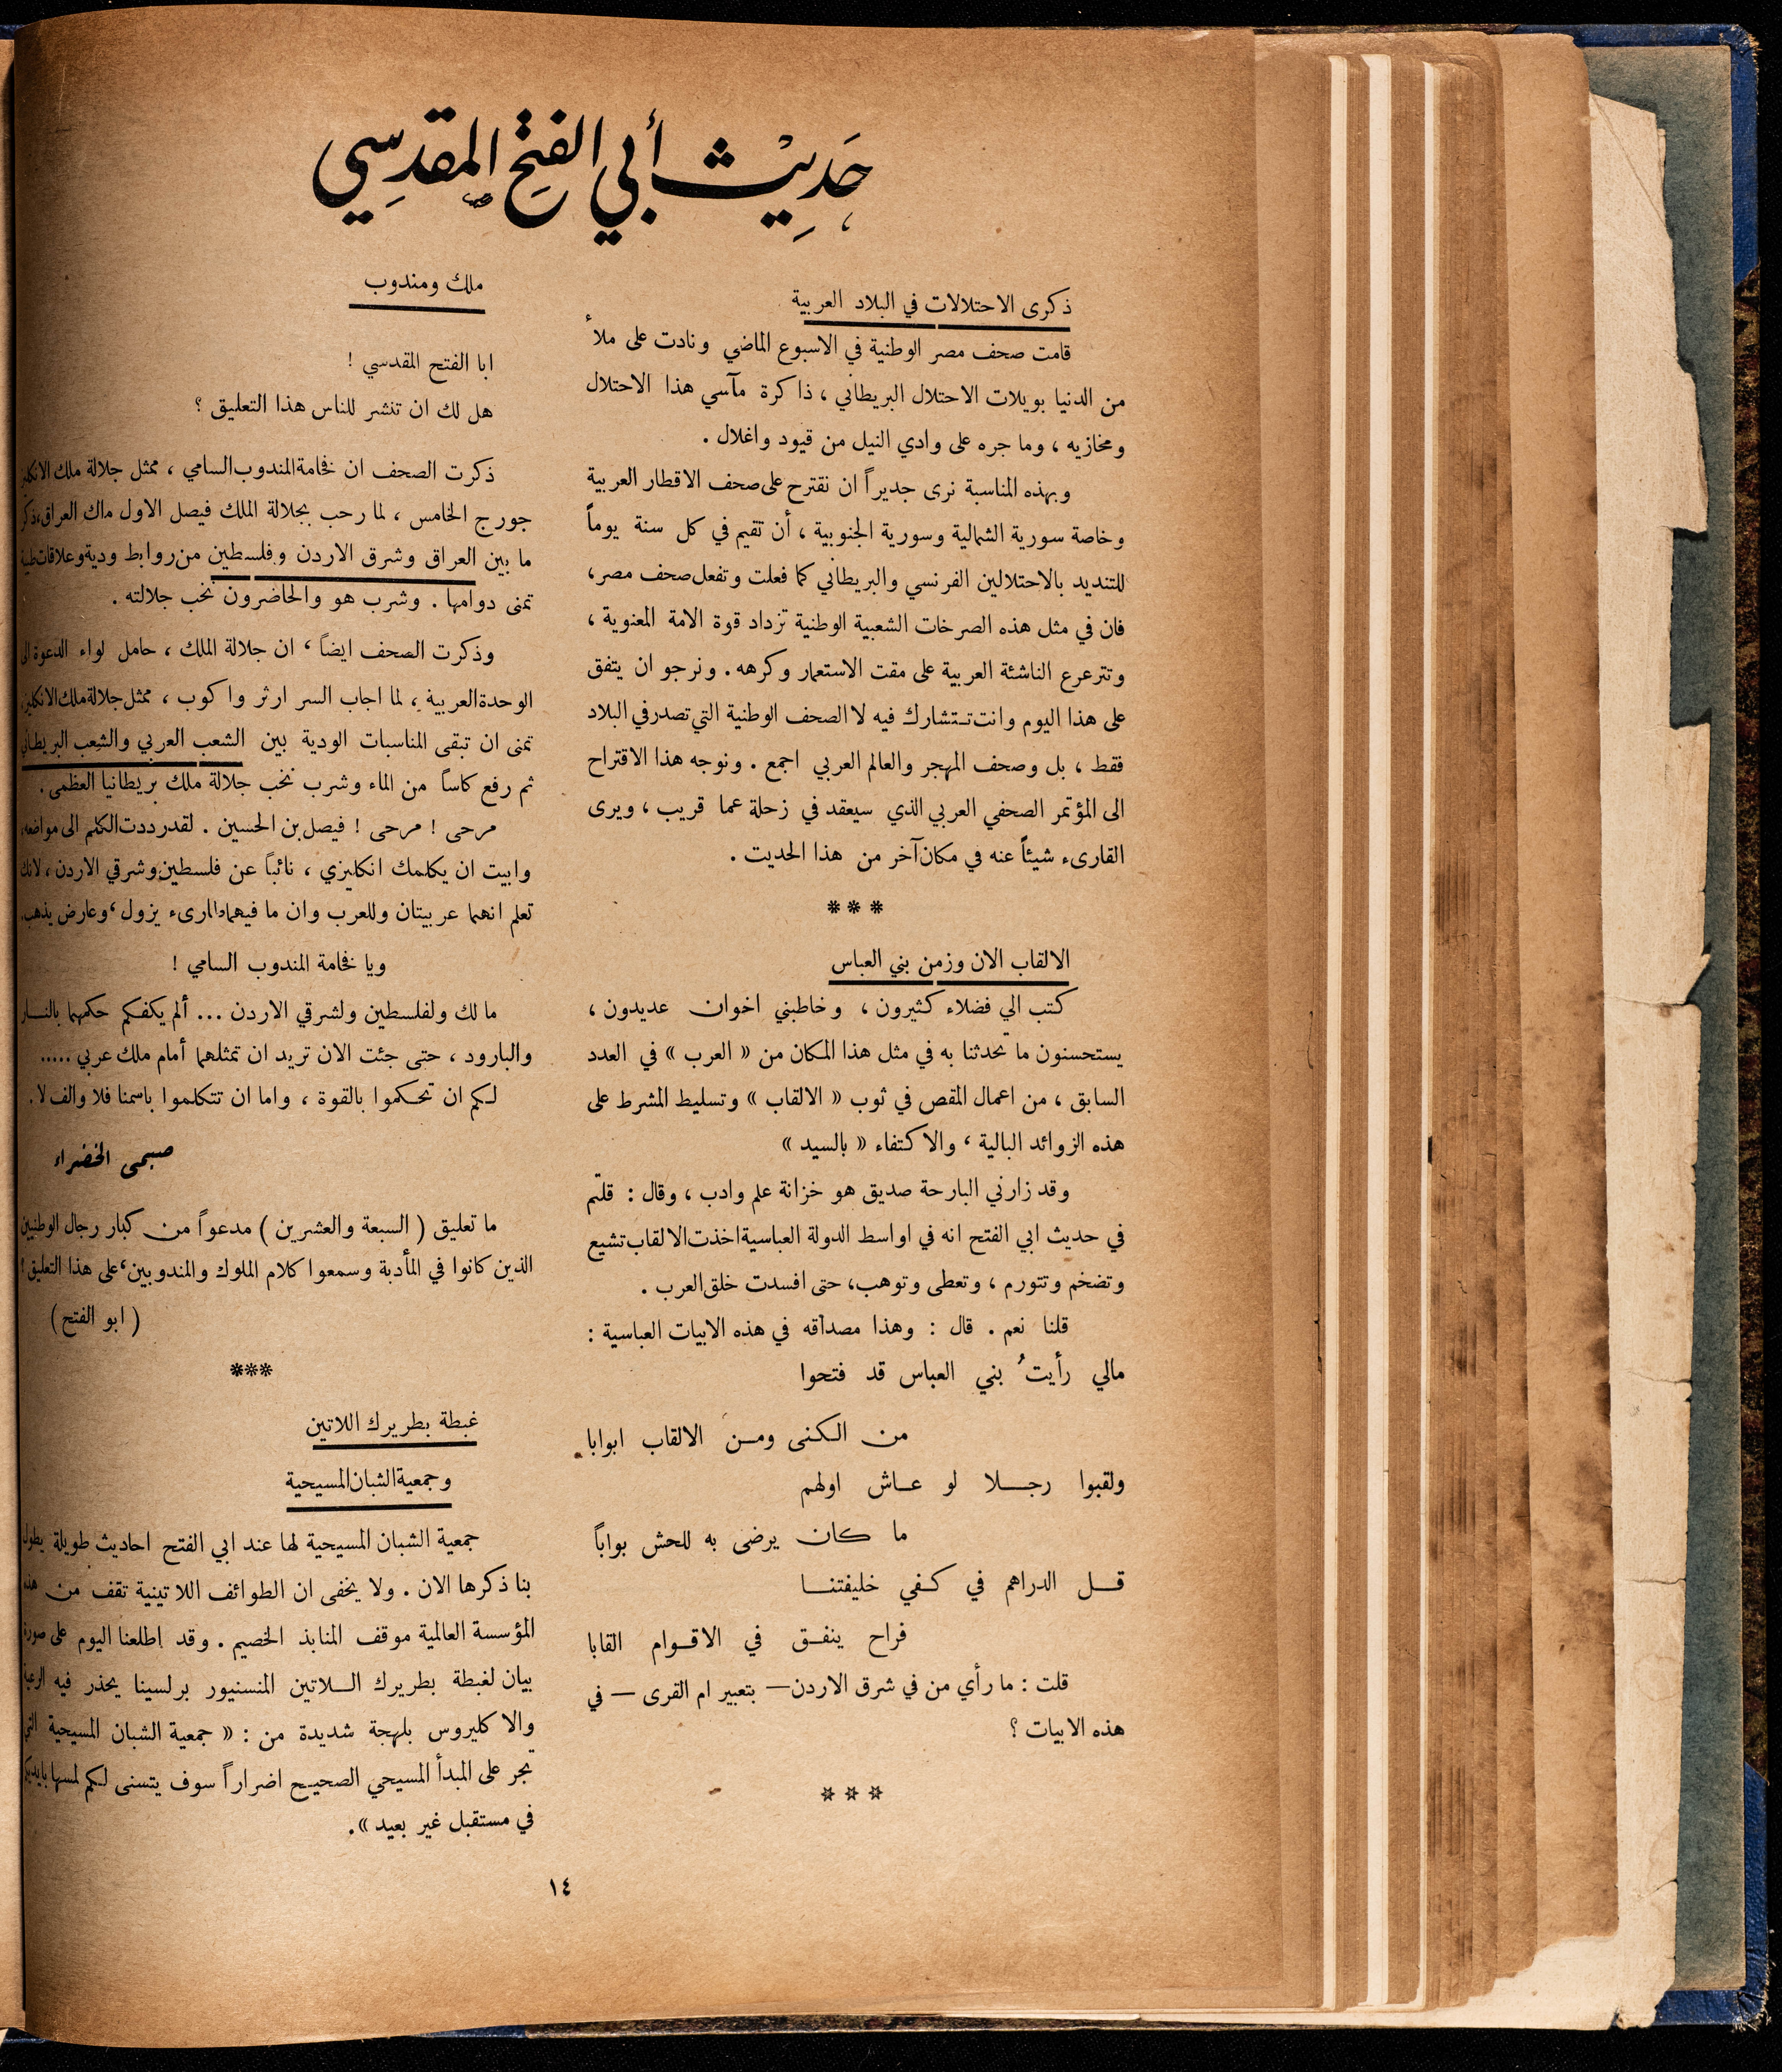 حَدِيْث أبي الفتح المقدِسِي
ذكرى الاحتلالات في البلاد العربية
قامت صحف مصر الوطنية في الاسبوع الماضي ونادت على ملأ
من الدنيا بويلات الاحتلال البريطاني ، ذاكرة مآسي هذا الاحتلال
ومخازيه ، وما جره على وادي النيل من قيود واغلال .
وبهذه المناسبة نرى جديراً ان نقترح على صحف الاقطار العربية
وخاصة سورية الشمالية وسورية الجنوبية ، أن تقيم في كل سنة يوماً
للتنديد بالاحتلالين الفرنسي والبريطاني كما فعلت وتفعل صحف مصر،
فان في مثل هذه الصرخات الشعبية الوطنية تزداد قوة الامة المعنوية ،
وتترعرع الناشئة العربية على مقت الاستعمار وكرهه . ونرجو ان يتفق
على هذا اليوم وانت تتشارك فيه لا الصحف الوطنية التي تصدر في البلاد
فقط ، بل وصحف المهجر والعالم العربي اجمع . ونوجه هذا الاقتراح
الى المؤتمر الصحفي العربي الذي سيعقد في زحلة عما قريب ، ويرى
القارىء شيئاً عنه في مكان آخر من هذا الحديث .
***
الالقاب الان وزمن بني العباس
كتب الي فضلاء كثيرون ، وخاطبني اخوان عديدون ،
يستحسنون ما تحدثنا به في مثل هذا المكان من « العرب » في العدد
السابق ، من اعمال المقص في ثوب « الالقاب » وتسليط المشرط على
هذه الزوائد البالية ، والاكتفاء « بالسيد »
وقد زارني البارحة صديق هو خزانة علم وادب ، وقال : قلتم
في حديث ابي الفتح انه في اواسط الدولة العباسية اخذت الالقاب تشيع
وتضخم وتتورم ، وتعطى وتوهب، حتى افسدت خلق العرب .
قلنا نعم . قال : وهذا مصداقه في هذه الابيات العباسية :
مالي رأيتُ بني العباس قد فتحوا
من الكنى ومن الالقاب ابوابا
ولقبوا رجلا لو عاش اولهم
ما كان يرضى به للحش بواباً
قل الدراهم في كفي خليفتنا
فراح ينفق في الاقوام القابا
قلت : ما رأي من في شرق الاردن — بتعبير ام القرى — في
هذه الابيات ؟
***
ملك ومندوب
ابا الفتح المقدسي !
هل لك ان تنشر للناس هذا التعليق ؟
ذكرت الصحف ان فخامة المندوب السامي ، ممثل جلالة ملك الانكليز
جورج الخامس ، لما رحب بجلالة الملك فيصل الاول ملك العراق، ذكر
ما بين العراق وشرق الاردن وفلسطين من روابط ودية وعلاقات طيبة
تمنى دوامها . وشرب هو والحاضرون نخب جلالته .
وذكرت الصحف ايضاً ، ان جلالة الملك ، حامل لواء الدعوة الى
الوحدة العربية ، لما اجاب السر ارثر واكوب ، ممثل جلالة ملك الانكليز،
تمنى ان تبقى المناسبات الودية بين الشعب العربي والشعب البريطاني
ثم رفع كاساً من الماء وشرب نخب جلالة ملك بريطانيا العظمى .
مرحى ! مرحى ! فيصل بن الحسين . لقد رددت الكلم الى مواضعه،
وابيت ان يكلمك انكليزي ، نائباً عن فلسطين وشرقي الاردن ، لانك
تعلم انهما عربيتان وللعرب وان ما فيهما طارىء يزول ، وعارض يذهب.
ويا فخامة المندوب السامي !
ما لك ولفلسطين ولشرقي الاردن ... ألم يكفكم حكمهما بالنار
والبارود ، حتى جئت الان تريد ان تمثلهما أمام ملك عربي .....
لكم ان تحكموا بالقوة ، واما ان تتكلموا باسمنا فلا والف لا .
صبحي الخضراء
ما تعليق ( السبعة والعشرين ) مدعواً من كبار رجال الوطنيين
الذين كانوا في المأدبة وسمعوا كلام الملوك والمندوبين، على هذا التعليق !
( ابو الفتح )
***
غبطة بطريرك اللاتين
وجمعية الشبان المسيحية
جمعية الشبان المسيحية لها عند ابي الفتح احاديث طويلة يطول
بنا ذكرها الان . ولا يخفى ان الطوائف اللاتينية تقف من هذه
المؤسسة العالمية موقف المنابذ الخصيم . وقد اطلعنا اليوم على صورة
بيان لغبطة بطريرك اللاتين المنسنيور برلسينا يحذر فيه الرعية
والاكليروس بلهجة شديدة من : « جمعية الشبان المسيحية التي
تجر على المبدأ المسيحي الصحيح اضراراً سوف يتسنى لكم لمسها بايديكم
في مستقبل غير بعيد » .
١٤